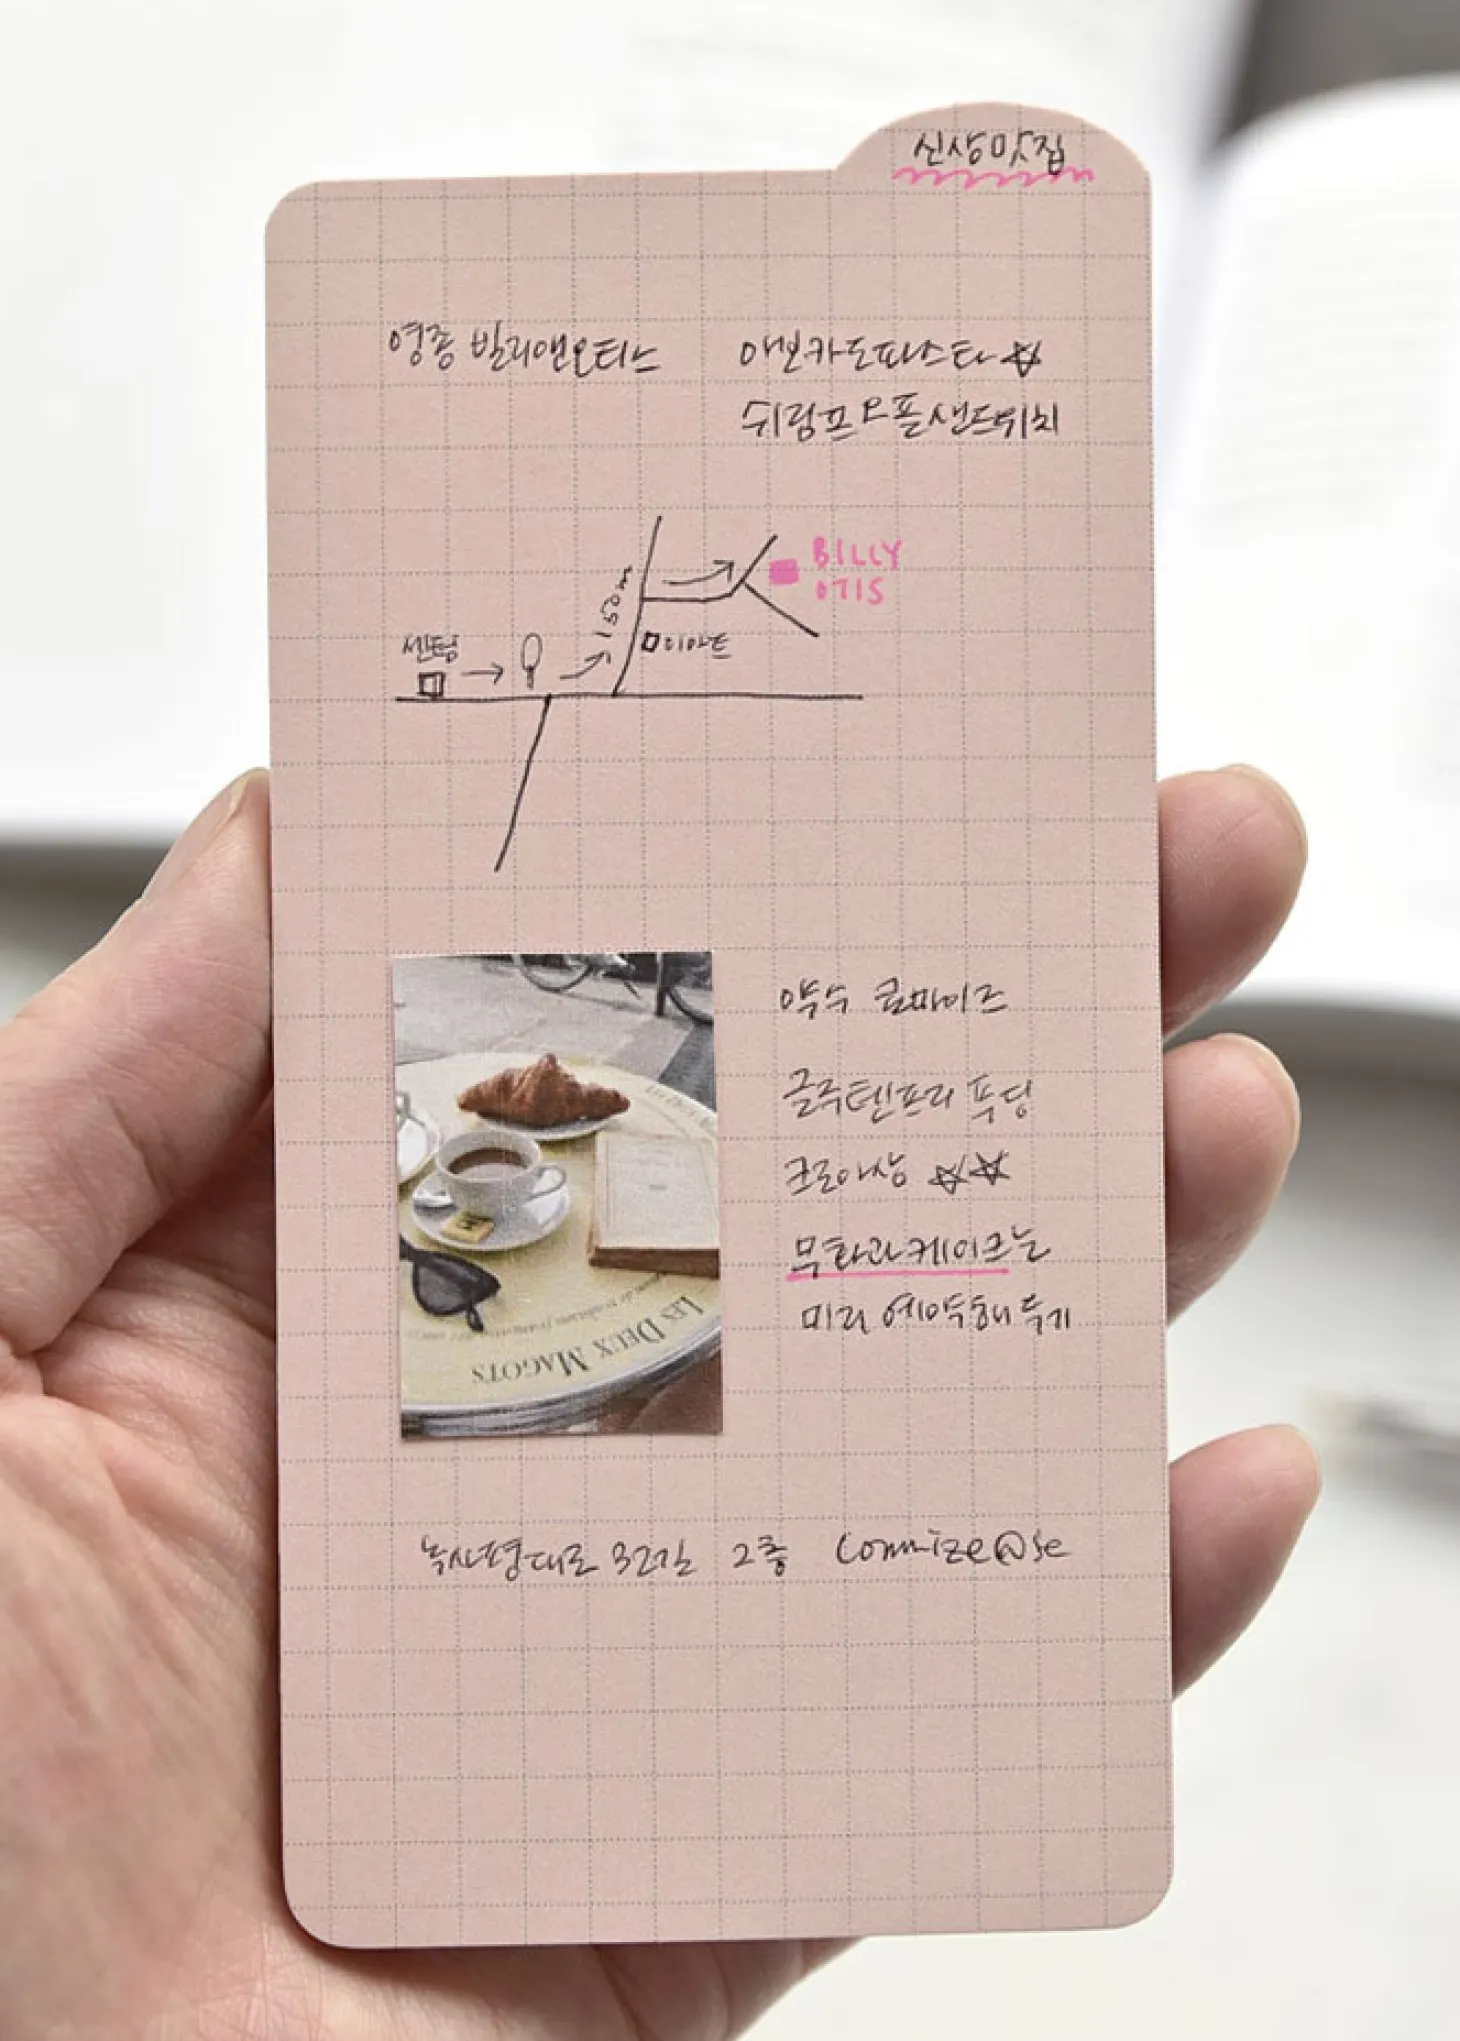 신상맛집
영종 빌리앤오티스
애보카도파스타 ☆
쉬림프오픈샌드위치
BILLY
OTIS
150m
센텀
이마트
약수 콤마이즈
글루텐프리 푸딩
크로아상 ☆☆
무화과케이크는
미리 예약해두기
LES DEUX MAGOTS
녹사평대로 32길 2층